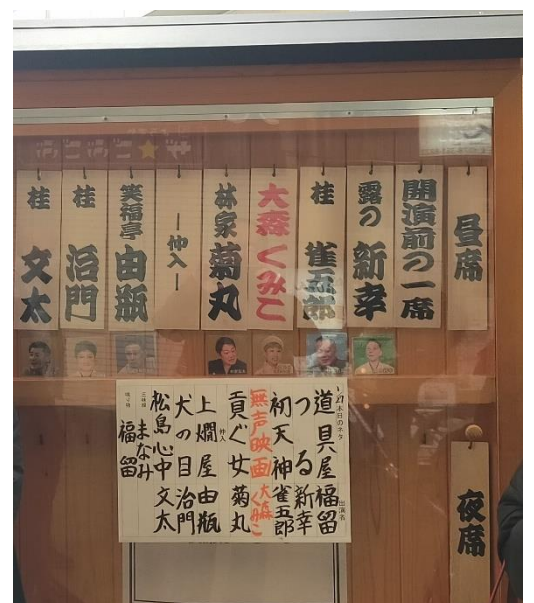 昼席
開演前の一席
露の 新幸
桂 雀五郎
大森 くみこ
林家 菊丸
―仲入―
笑福亭 由瓶
桂 治門
桂 文太
本日のネタ
出演名
道具屋 福留
つる 新幸
初天神 雀五郎
無声映画 大森くみこ
仲入
貢ぐ女 菊丸
上燗屋 由瓶
犬の目 治門
松島心中 文太
三味線
まなみ
鳴り物
福留
夜席